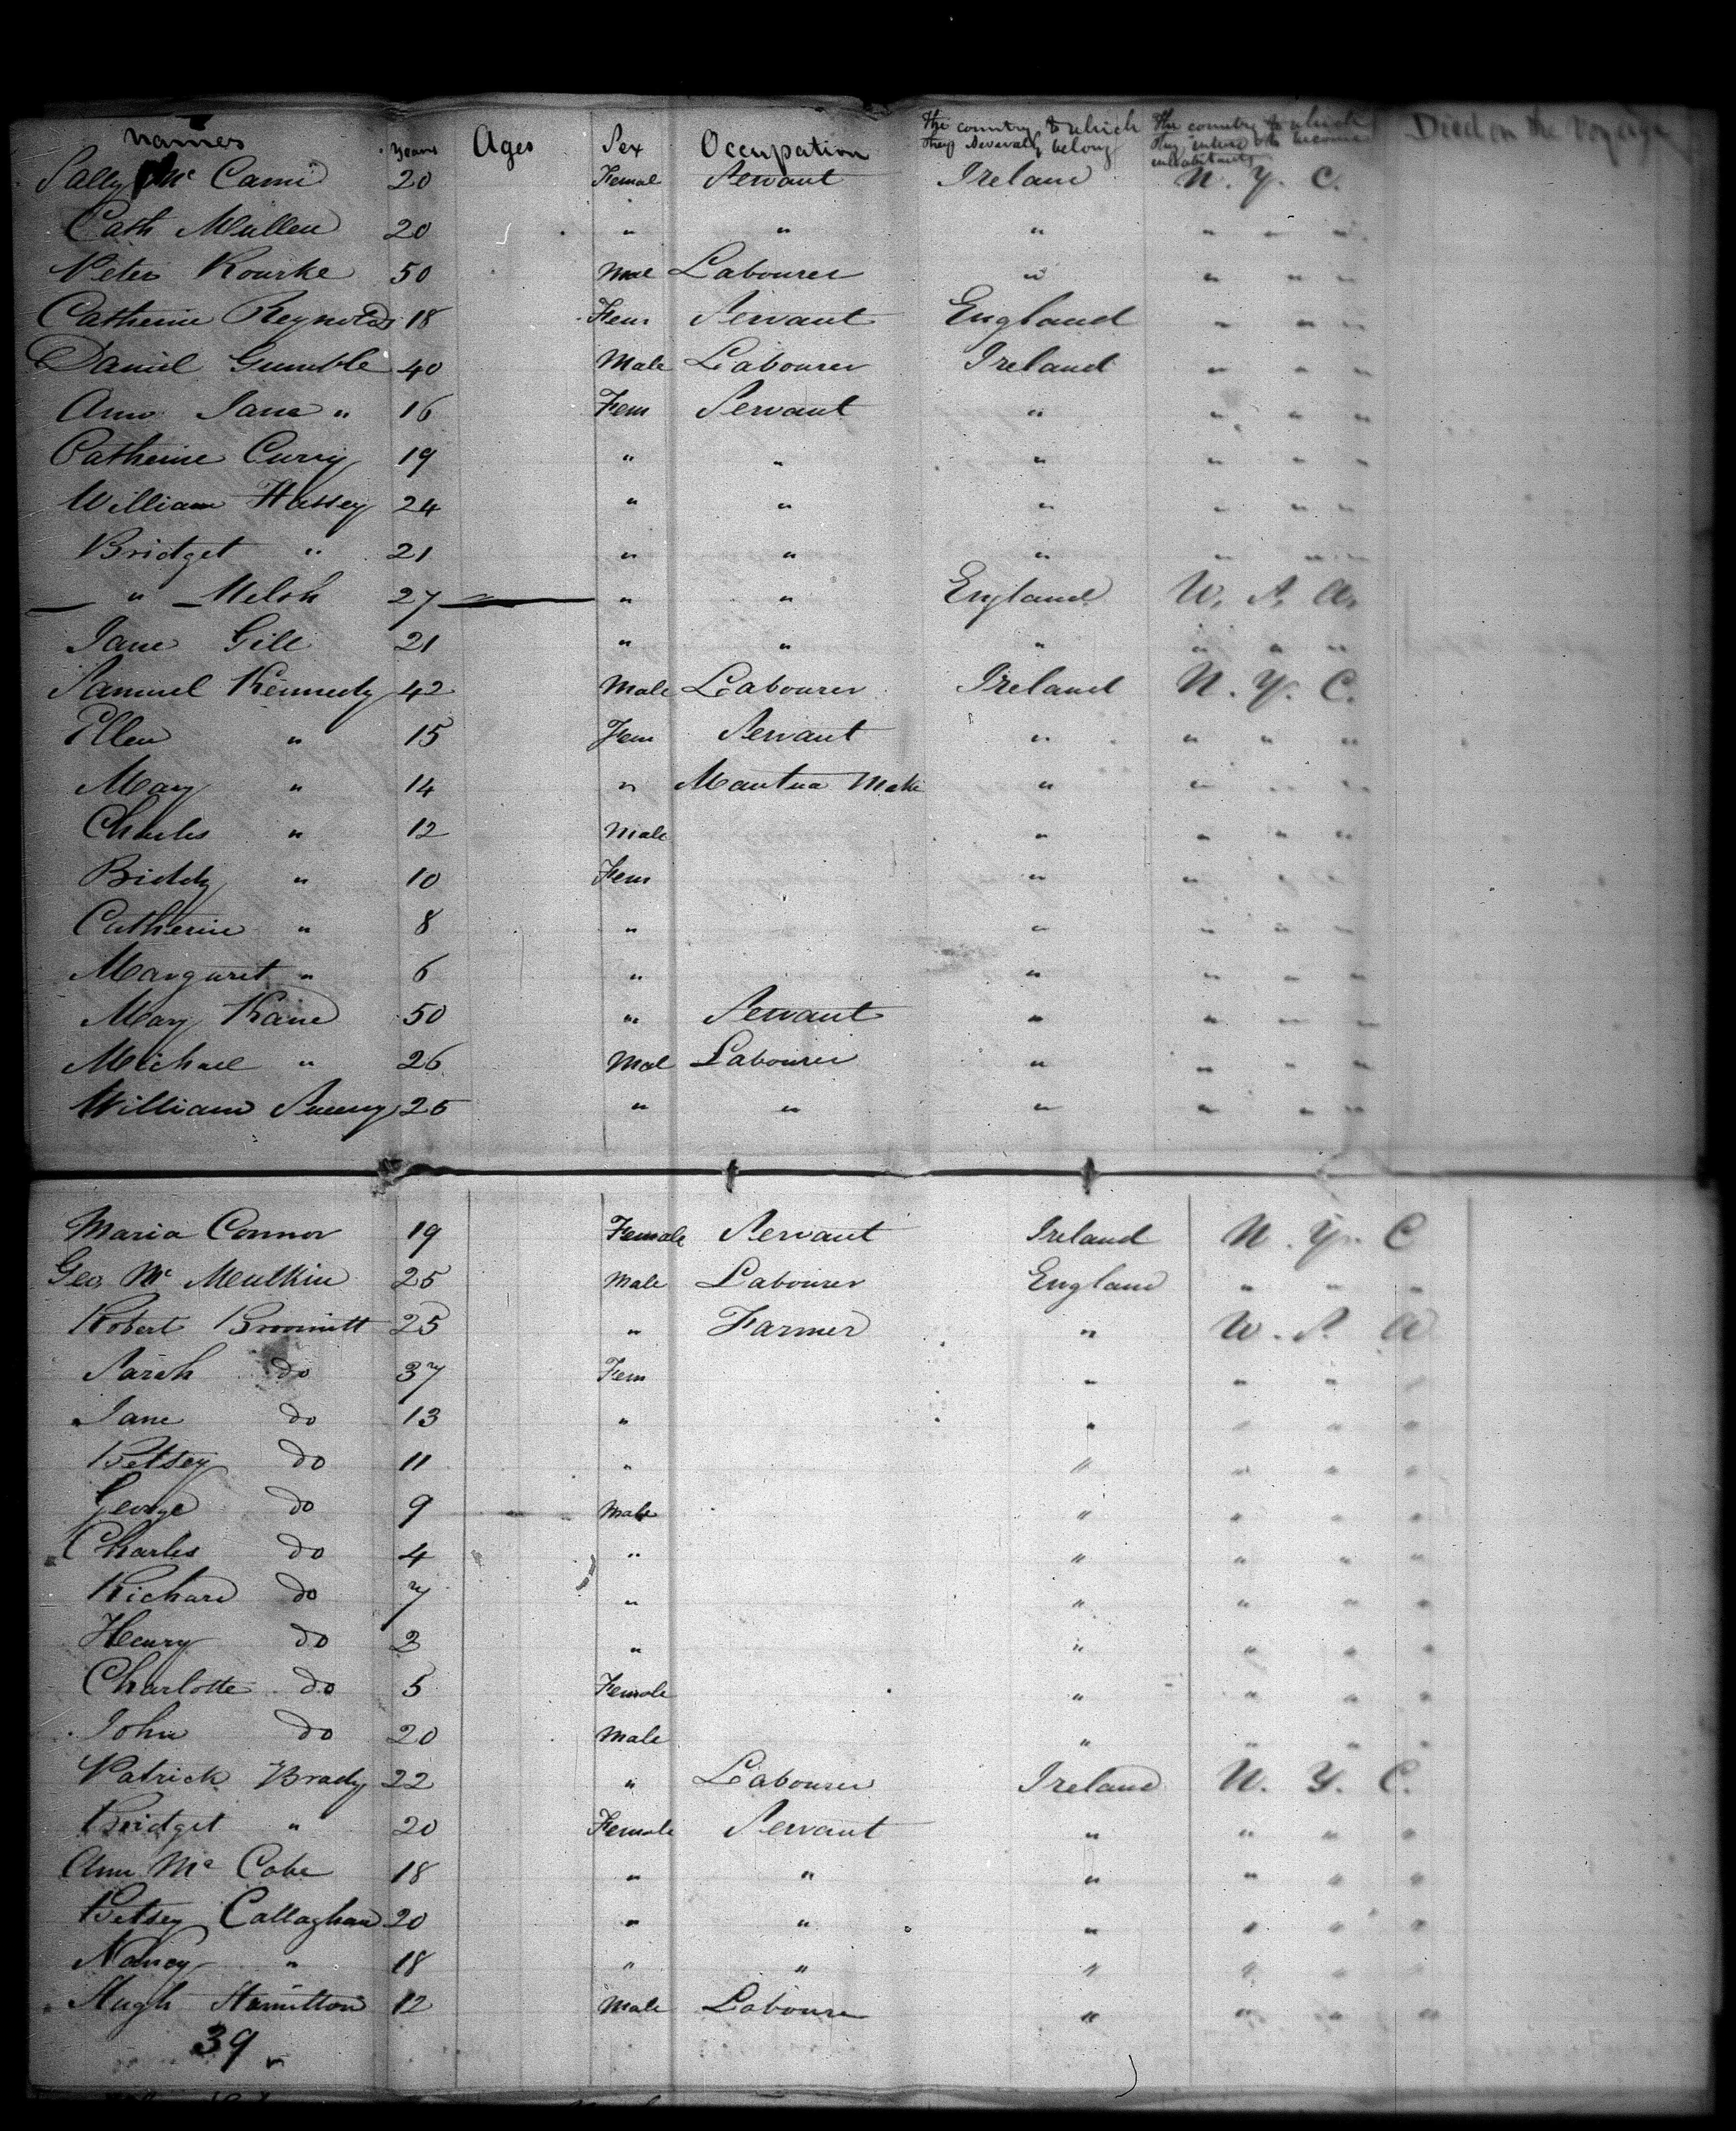 names Years Ages Sex Occupation The country to which they severally belong The country to which they intend to become inhabitants Died on the Voyage
Sally Mc Cann 20 Femal Servant Ireland N. Y. C.
Cath Mullen 20 " " " " " "
Peter Rourke 50 Mal Labourer " " " "
Catherine Reynolds 18 Fem Servant England " " "
Daniel Gumble 40 Male Labourer Ireland " " "
Ann Jane " 16 Fem Servant " " " "
Catherine Curry 19 " " " " " "
William Hussey 24 " " " " " "
Bridget " 21 " " " " " "
" Welsh 27 " " England U. S. A.
Jane Gill 21 " " " " " "
Samuel Kennedy 42 Male Labourer Ireland N. Y. C.
Ellen " 15 Fem Servant " " " "
Mary " 14 " Mantua Make " " " "
Charles " 12 Male " " " "
Biddy " 10 Fem " " " "
Catherine " 8 " " " " "
Margaret " 6 " " " " "
Mary Kane 50 " Servant " " " "
Michael " 26 Mal Labourer " " " "
William 25 " " " " " "
Maria Connor 19 Female Servant Ireland N. Y. C
Geo. Mc Meulkin 25 Male Labourer England " " "
Robert 25 " Farmer " U. S. A
Sarah do 37 Fem " " " "
Jane do 13 " " " " "
Betsey do 11 " " " " "
George do 9 Male " " " "
Charles do 4 " " " " "
Richard do 7 " " " " "
Henry do 2 " " " " "
Charlotte do 5 Female " " " "
John do 20 Male " " " "
Patrick Brady 22 " Labourer Ireland N. Y. C.
Bridget " 20 Female Servant " " " "
Ann Mc Cabe 18 " " " " " "
Betsey Callaghan 20 " " " " " "
Nancy " 18 " " " " " "
Hugh Hamilton 12 Male Labourer " " " "
39